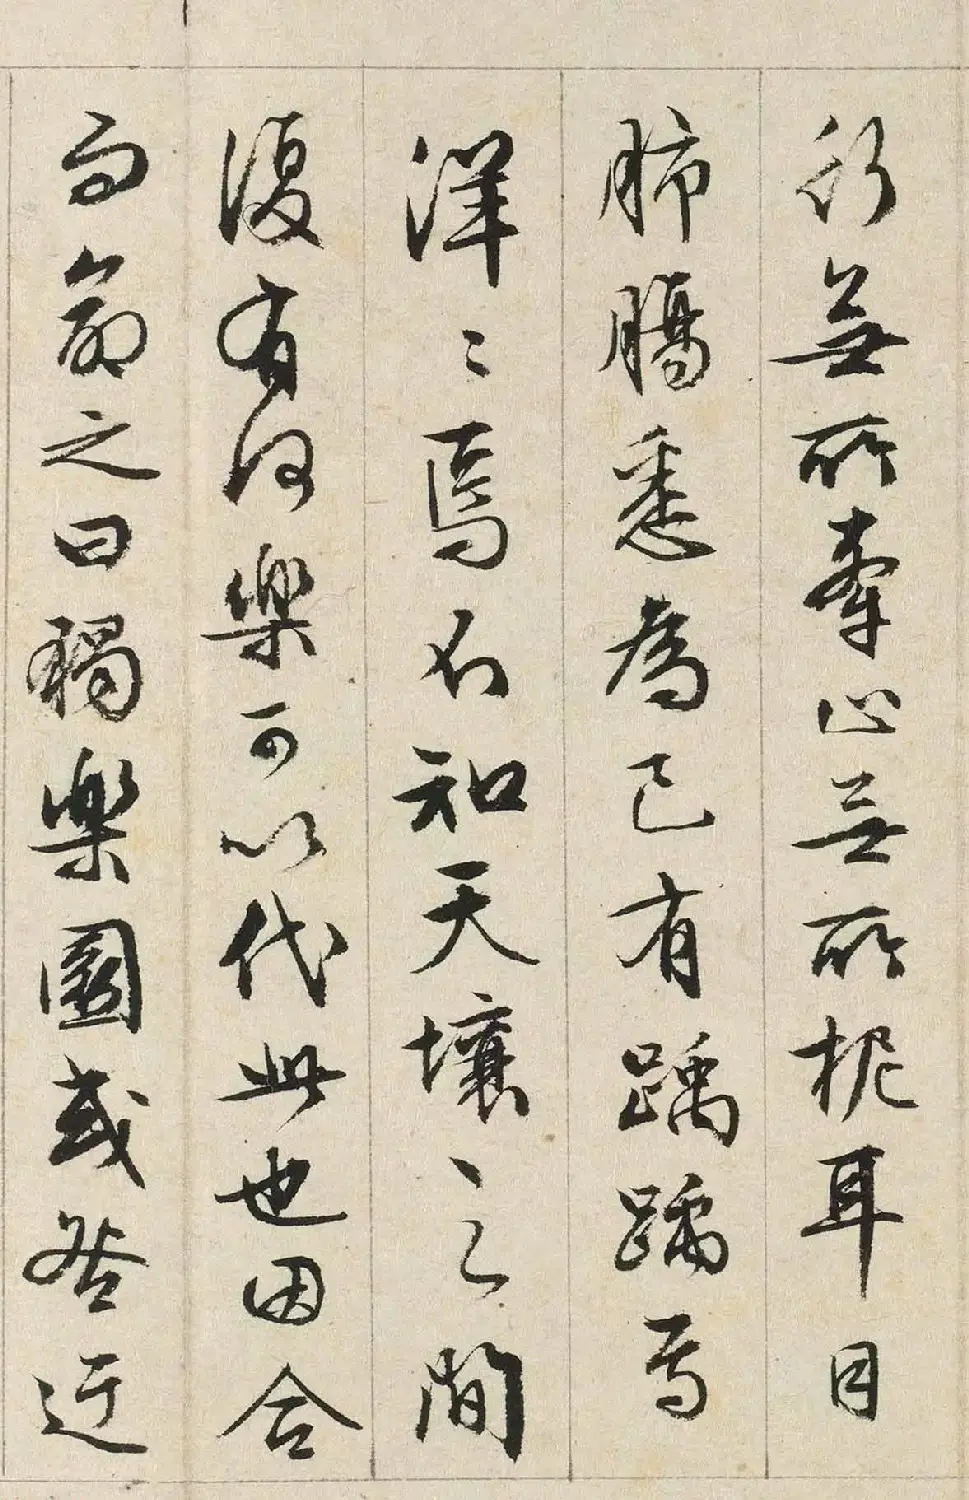 行無所牽止無所柅耳目
肺腸悉為己有踽踽焉
洋〻焉不知天壤之間
復有何樂可以代此也因合
而命之曰獨樂園或咎迂